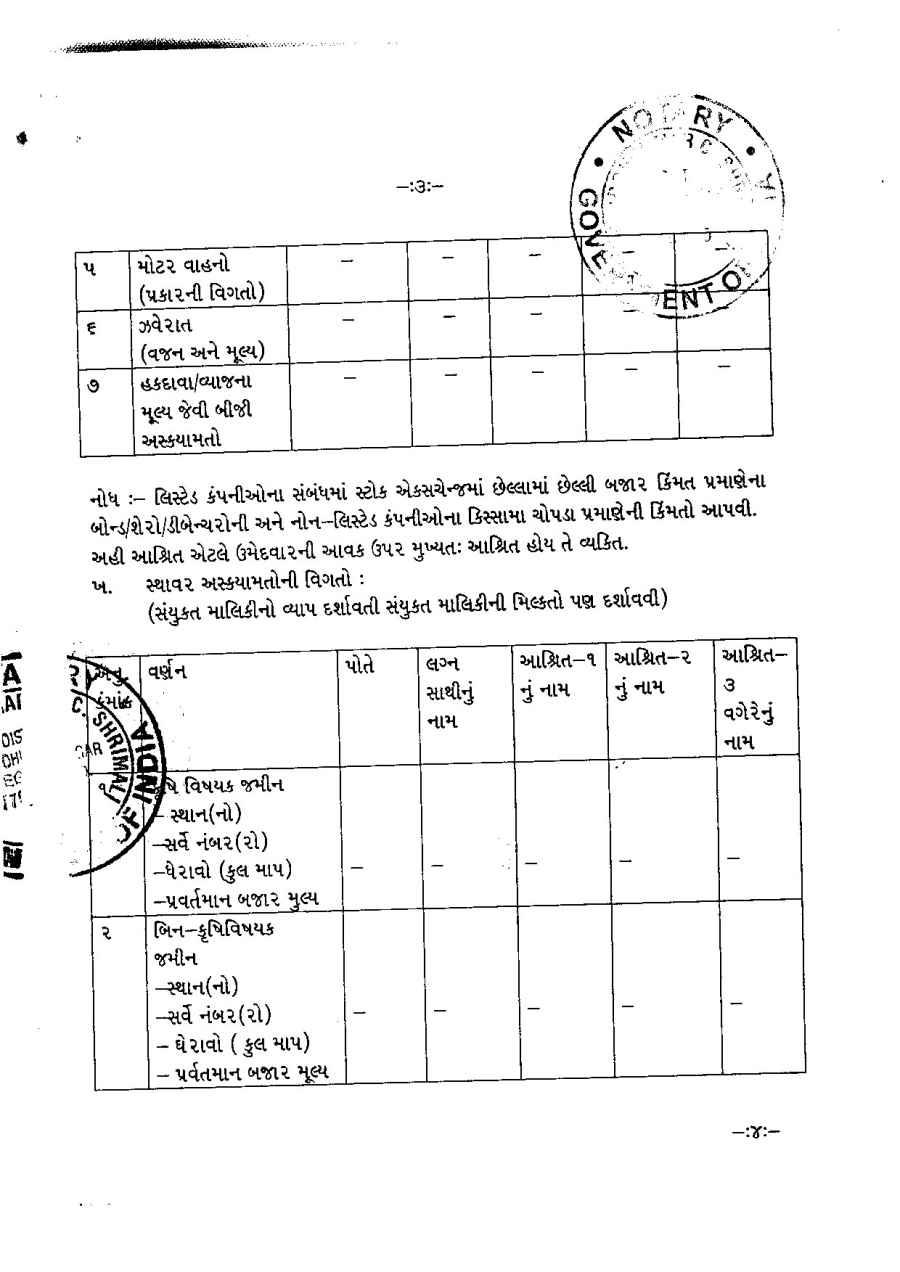 NOTARY
GOVERNMENT O
–:૩:–
૫ મોટર વાહનો – – – – –
(પ્રકારની વિગતો)
૬ ઝવેરાત – – – – –
(વજન અને મૂલ્ય)
૭ હકદાવા/વ્યાજના – – – – –
મૂલ્ય જેવી બીજી
અસ્કયામતો
નોધ :– લિસ્ટેડ કંપનીઓના સંબંધમાં સ્ટોક એકસચેન્જમાં છેલ્લામાં છેલ્લી બજાર કિંમત પ્રમાણેના
બોન્ડ/શેરો/ડીબેન્ચરોની અને નોન–લિસ્ટેડ કંપનીઓના કિસ્સામા ચોપડા પ્રમાણેની કિંમતો આપવી.
અહી આશ્રિત એટલે ઉમેદવારની આવક ઉપર મુખ્યતઃ આશ્રિત હોય તે વ્યકિત.
ખ. સ્થાવર અસ્કયામતોની વિગતો :
(સંયુકત માલિકીનો વ્યાપ દર્શાવતી સંયુકત માલિકીની મિલ્કતો પણ દર્શાવવી)
અનુ વર્ણન પોતે લગ્ન આશ્રિત–૧ આશ્રિત–૨ આશ્રિત–
ક્રમાંક સાથીનું નું નામ નું નામ ૩
નામ વગેરેનું
નામ
C. SHRIMALI
INDIA
OF
૧ કૃષિ વિષયક જમીન
– સ્થાન(નો)
–સર્વે નંબર(રો)
–ઘેરાવો (કુલ માપ) – – – – –
–પ્રવર્તમાન બજાર મુલ્ય
૨ બિન–કૃષિવિષયક
જમીન
–સ્થાન(નો)
–સર્વે નંબર(રો) – – – – –
– ઘેરાવો ( કુલ માપ)
– પ્રર્વતમાન બજાર મૂલ્ય
–:૪:–